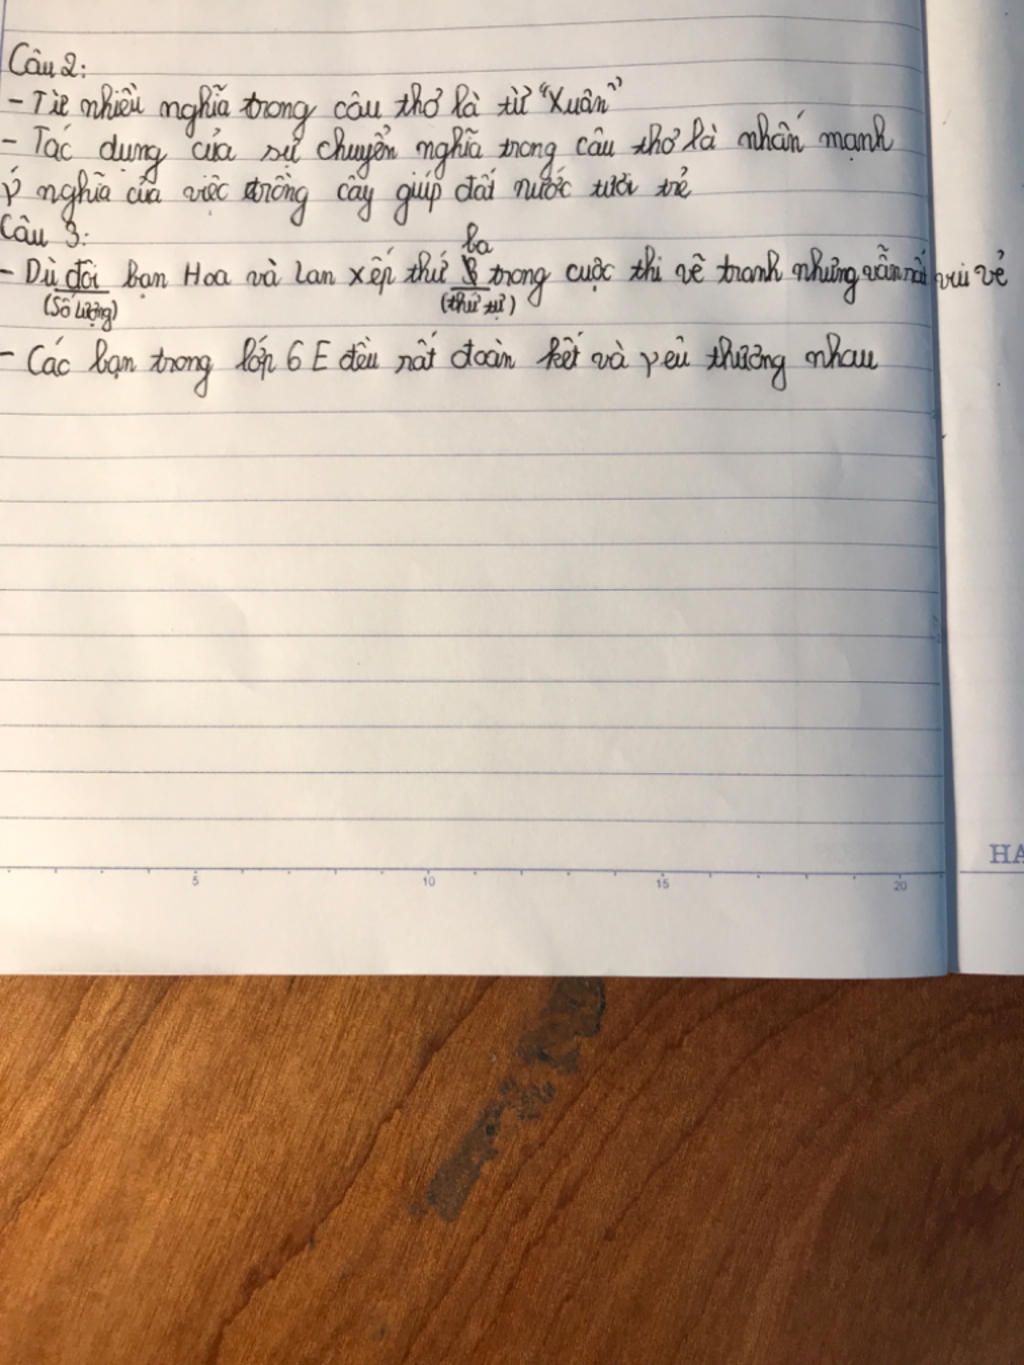 Câu 2:
- Từ nhiều nghĩa trong câu thơ là từ "Xuân"
- Tác dụng của sự chuyển nghĩa trong câu thơ là nhấn mạnh
ý nghĩa của việc trồng cây giúp đất nước tươi trẻ
Câu 3:
ba
- Dù đôi bạn Hoa và Lan xếp thứ trong cuộc thi vẽ tranh nhưng vẫn rất vui vẻ
(Số lượng) (thứ tự)
- Các bạn trong lớp 6E đều rất đoàn kết và yêu thương nhau
5 10 15 20
HA